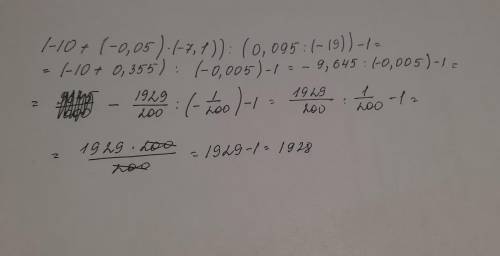 (-10 + (-0,05) · (-7,1)) : (0,095 : (-19)) - 1 =
= (-10 + 0,355) : (-0,005) - 1 = - 9,645 : (-0,005) - 1 =
= - 1929/200 : (- 1/200) - 1 = 1929/200 : 1/200 - 1 =
= 1929 · 200/200 = 1929 - 1 = 1928